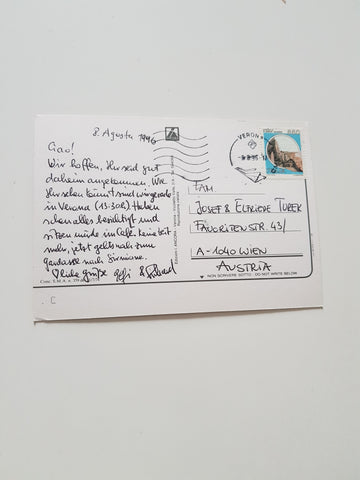 8. Agosto 1996
Ciao!
Wir hoffen, Ihr seid gut
daheim angekommen. Wie
Ihr sehen könnt sind wir gerade
in Verona (13.30h). Haben
schon alles besichtigt und
sitzen müde im Cafe. Keine Zeit
mehr, jetzt gehts noch zum
Gardasee nach Sirmione.
Liebe Grüße
VERONA
650
FAM
JOSEF & ELFRIEDE TUREK
FAVORITENSTR. 43/
A-1040 WIEN
AUSTRIA
NON SCRIVERE SOTTO · DO NOT WRITE BELOW